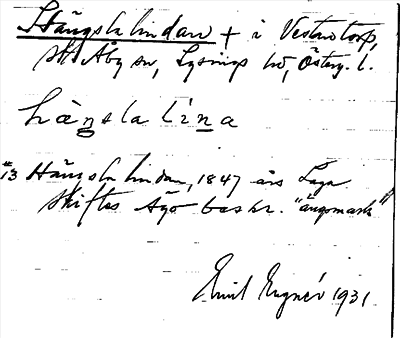 Hängsla lindan + i Vestra torp,
Sts Åby sn, Lysings hd, Österg. l.
hàngsla lina
#13 Hängsla lindan, 1847 års Laga
skiftes Ägo beskr. "ängsmark"
Emil Engnér 1931.